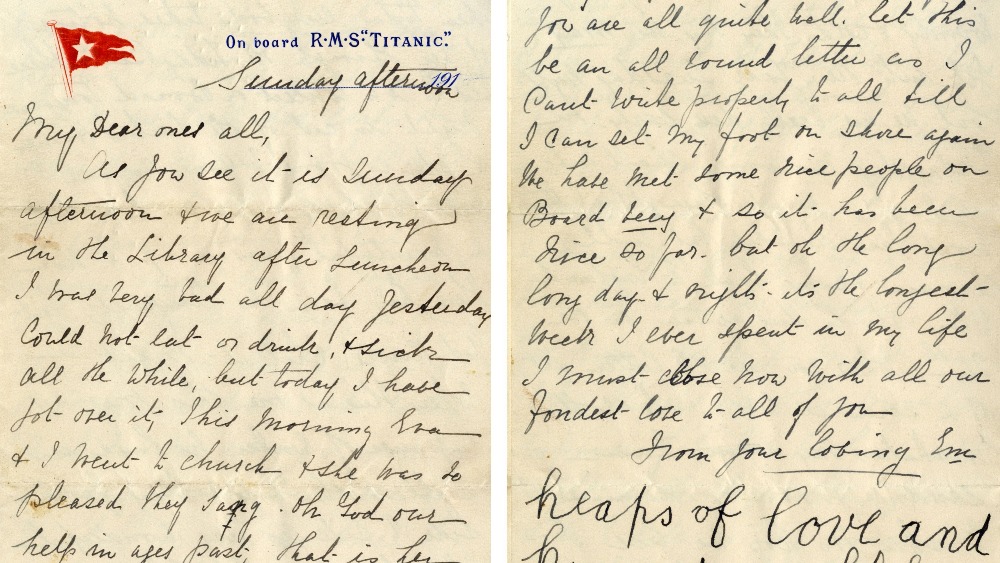 On board R·M·S "TITANIC."
Sunday afternoon 191
My Dear ones all,
As you see it is Sunday
afternoon & we are resting
in the Library after Luncheon
I was very bad all day yesterday
Could not eat or drink, & sick
all the while, but today I have
got over it, This Morning Eva
& I went to church & she was so
pleased they sang. Oh God our
help in ages past, that is her
you are all quite well. let this
be an all round letter as I
Cant write properly to all till
I can set my foot on shore again
We have Met some nice people on
Board
& so it has been
Nice so far. but oh the long
long days & nights. its the longest
Week I ever spent in my life
I must close now with all our
fondest love to all of you
From your loving Em
heaps of love and